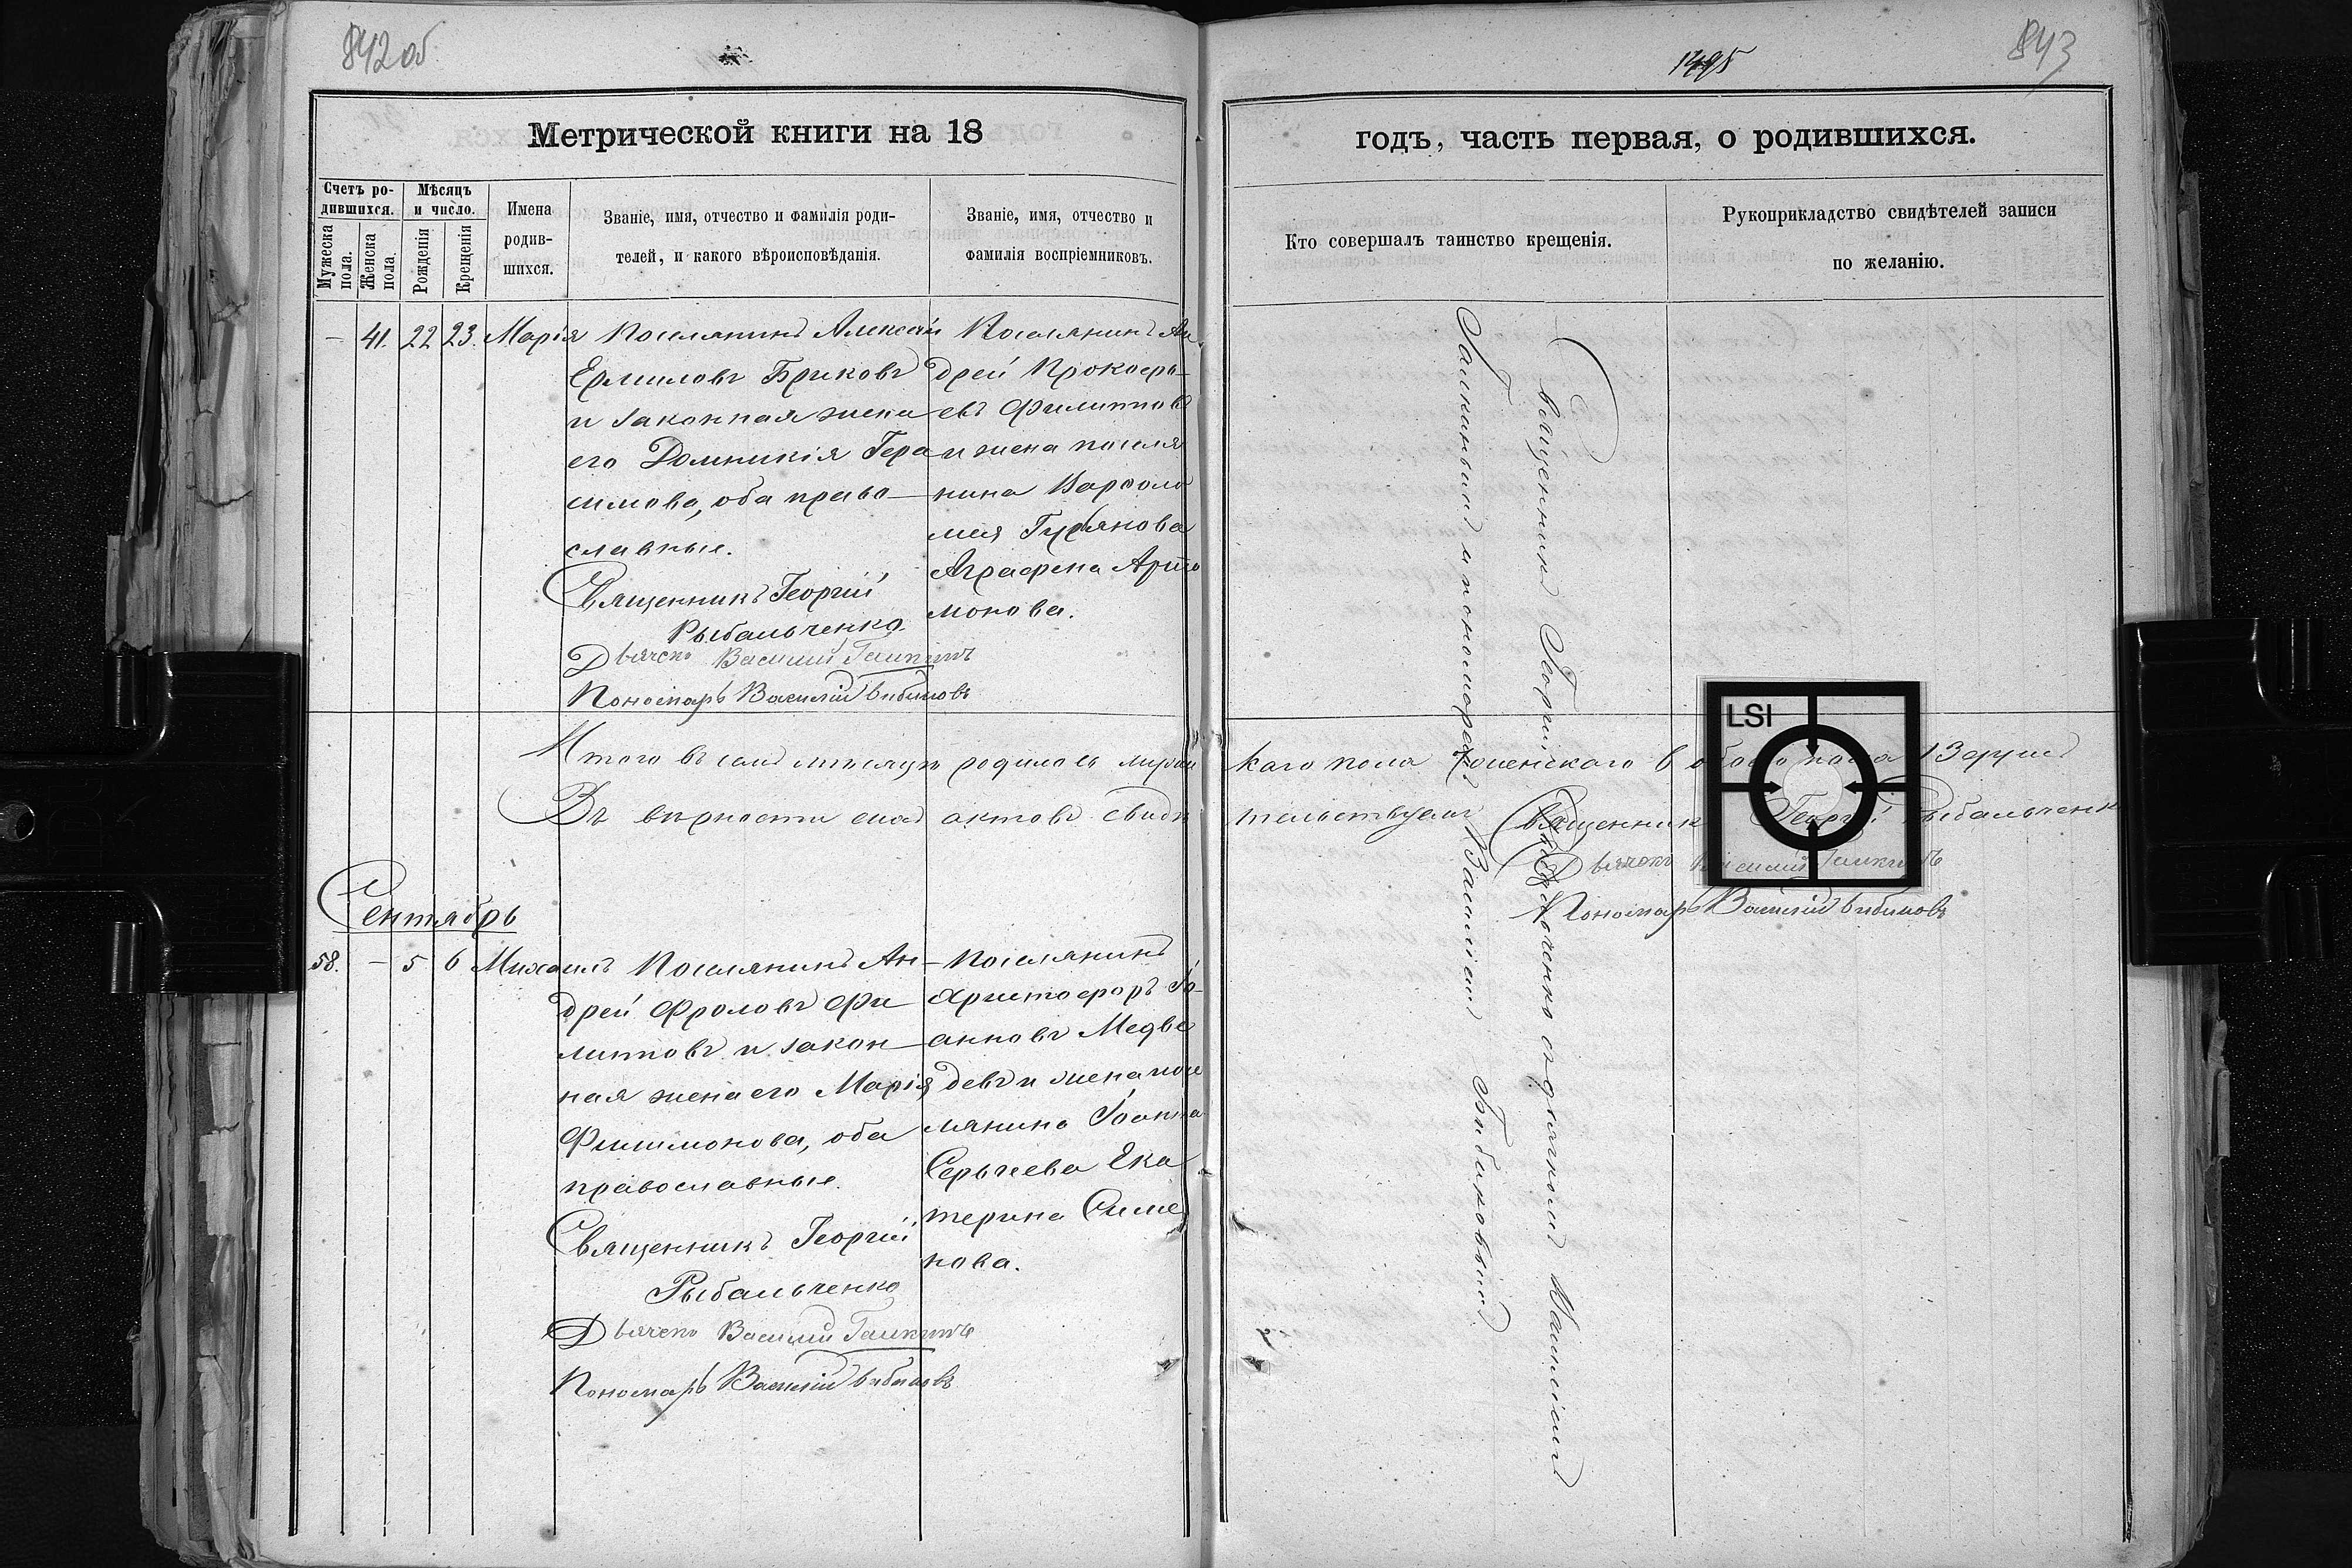 842об
1495
843
Метрической книги на 18
годъ, часть первая, о родившихся.
Счетъ ро-
дившихся.
Мужеска пола.
Женска пола.
Мѣсяцъ
и число.
Рожденія
Крещенія
Имена
родив-
шихся.
Званіе, имя, отчество и фамилія роди-
телей, и какого вѣроисповѣданія.
Званіе, имя, отчество и
фамилія воспріемниковъ.
Кто совершалъ таинство крещенія.
Рукоприкладство свидѣтелей записи
по желанію.
— 41. 22 23. Марія
Поселянинъ Алексѣй
Ермиловъ Бриковъ
и законная жена
его Домникія Гера
симова, оба право-
славные.
Священникъ Георгій
Рыбальченко
Дьячекъ Василій Галкинъ
Пономарь Василій Бибиковъ
Поселянинъ Ан
дрей Прокофь-
евъ Филиповъ
и жена поселя
нина Варѳоло
мея Гурьянова
Аграфена Арта
монова.
Священникъ Георгій Рыбальченко съ дьячкомъ Василіемъ
Галкинымъ и пономаремъ Василіемъ Бибиковымъ
Итого въ семъ мѣсяцѣ родилось мужес
каго пола 7 женскаго 6 обоего пола 13 душъ
Въ вѣрности сихъ актовъ свидѣ
тельствуемъ Священникъ Георгій Рыбальченко
Дьячекъ Василій Галкинъ
Пономарь Василій Бибиковъ
LSI
Сентябрь
58. — 5 6 Михаилъ
Поселянинъ Ан-
дрей Фроловъ Фи
липовъ и закон-
ная жена его Марія
Филимонова, оба
православные.
Священникъ Георгій
Рыбальченко
Дьячекъ Василій Галкинъ
Пономарь Василій Бибиковъ
Поселянинъ
Христофоръ Іо-
анновъ Медве
девъ и жена посе
лянина Іоанна
Сергеева Ека
терина Симе
нова.